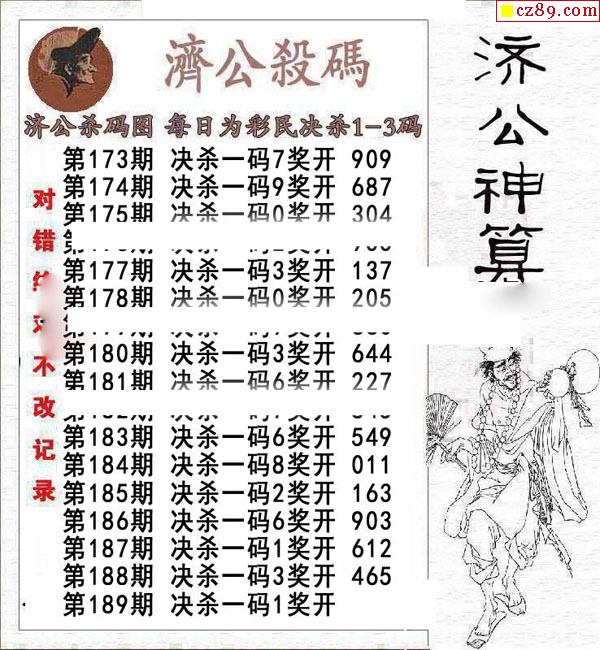 cz89.com
濟公殺碼
济公杀码图 每日为彩民决杀1-3码
第173期 决杀一码7奖开 909
第174期 决杀一码9奖开 687
第175期 决杀一码0奖开 304
第177期 决杀一码3奖开 137
第178期 决杀一码0奖开 205
第180期 决杀一码3奖开 644
第181期 决杀一码6奖开 227
第183期 决杀一码6奖开 549
第184期 决杀一码8奖开 011
第185期 决杀一码2奖开 163
第186期 决杀一码6奖开 903
第187期 决杀一码1奖开 612
第188期 决杀一码3奖开 465
第189期 决杀一码1奖开
对错
不改记录
济公神算